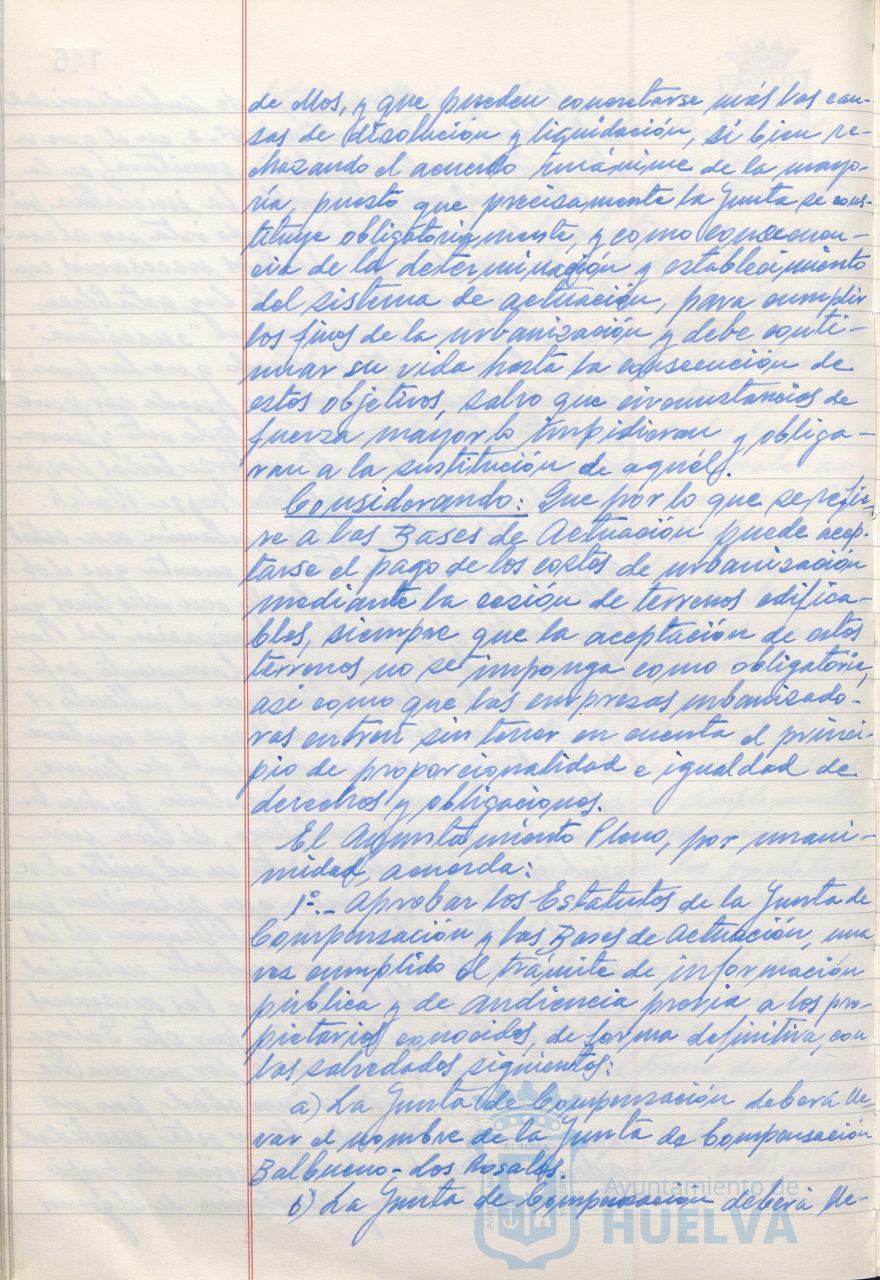 de ellos, y que pueden concretarse más las cau-
sas de disolución y liquidación, si bien re-
chazando el acuerdo unánime de la mayo-
ría, puesto que precisamente la Junta se cons-
tituye obligatoriamente, y como consecuen-
cia de la determinación y establecimiento
del sistema de actuación, para cumplir
los fines de la urbanización y debe conti-
nuar su vida hasta la consecución de
estos objetivos, salvo que circunstancias de
fuerza mayor lo impidieran y obliga-
ran a la sustitución de aquél.
Considerando: Que por lo que se refie-
re a las Bases de Actuación puede acep-
tarse el pago de los costos de urbanización
mediante la cesión de terrenos edifica-
bles, siempre que la aceptación de estos
terrenos no se imponga como obligatoria,
asi como que las empresas urbanizado-
ras entren sin tener en cuenta el princi-
pio de proporcionalidad e igualdad de
derechos y obligaciones.
El Ayuntamiento Pleno, por unani-
midad, acuerda:
1º.- Aprobar los Estatutos de la Junta de
Compensación y las Bases de Actuación, una
vez cumplido el trámite de información
pública y de audiencia previa a los pro-
pietarios conocidos, de forma definitiva, con
las salvedades siguientes:
a) La Junta de Compensación deberá lle-
var el nombre de la Junta de Compensación
Balbueno-Los Rosales.
b) La Junta de Compensación deberá lle-
Ayuntamiento de
HUELVA